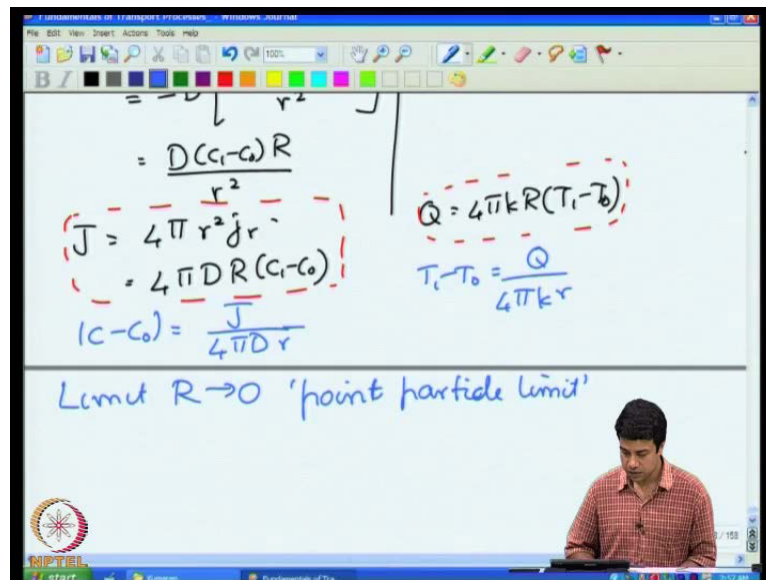 Fundamentals of Transport Processes_ - Windows Journal
File Edit View Insert Actions Tools Help
100%
B I
= -D [ r² ]
= D(C₁-C₀)R / r²
J = 4πr²jr
= 4πDR(C₁-C₀)
(C-C₀) = J / 4πDr
Q = 4πkR(T₁-T₀)
T₁-T₀ = Q / 4πkr
Limit R→0 'point particle limit'
NPTEL
start
Fundamentals of Tra
3:57 AM